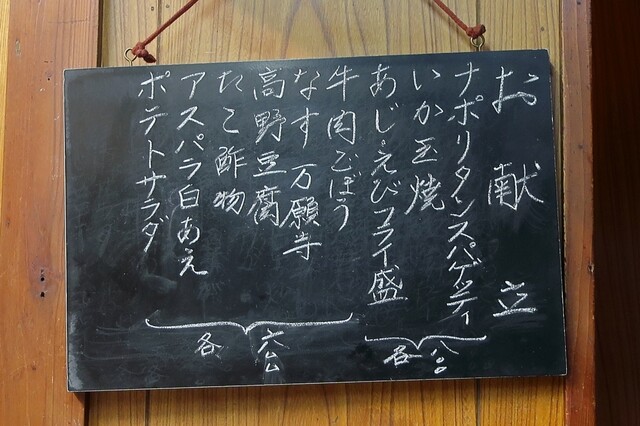 お献立
ナポリタンスパゲッティ
いか玉焼
あじ・えびフライ盛
牛肉ごぼう
なす 万願寺
高野豆腐
たこ酢物
アスパラ白あえ
ポテトサラダ
各八〇〇
各